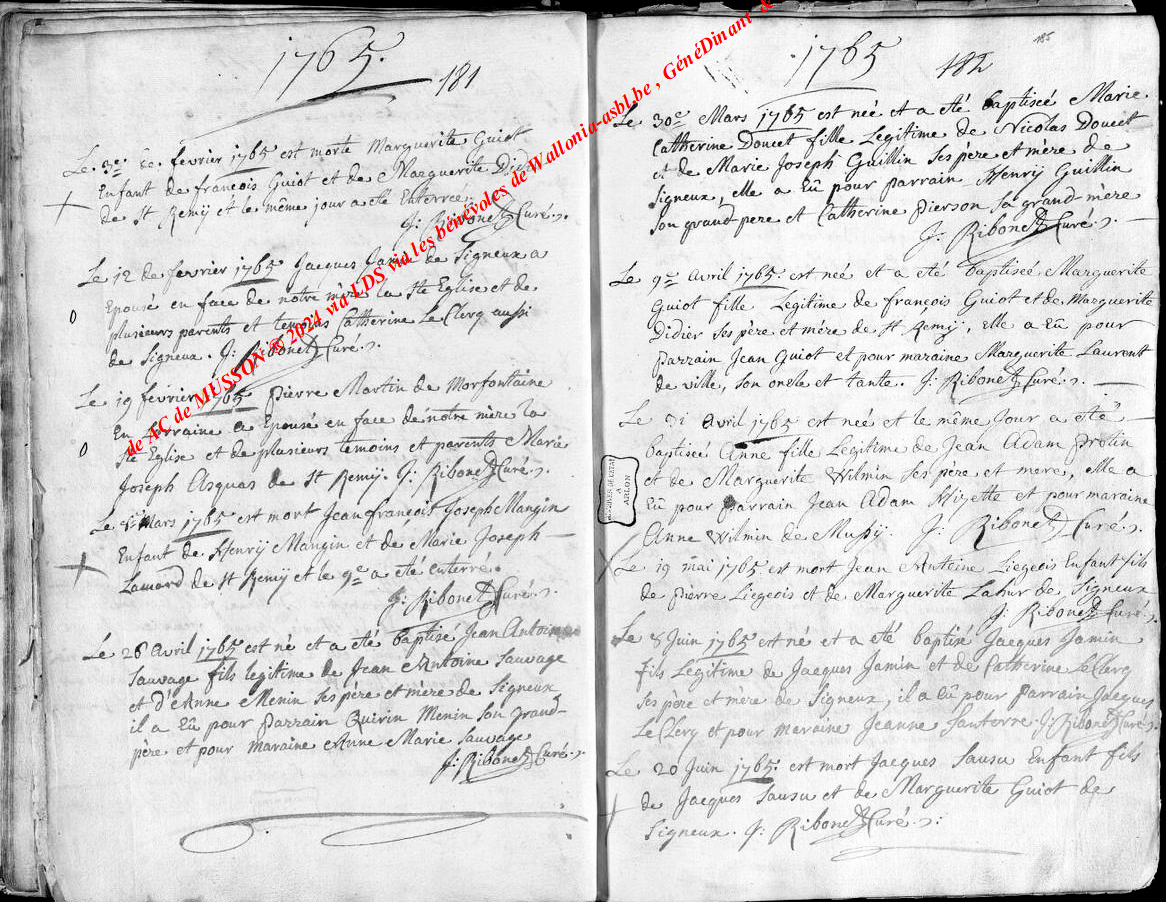 1765.
181
Le 3e de fevrier 1765 est morte Marguerite Guiot
Enfant de françois Guiot et de Marguerite Didier
de St Remij et le même jour a eté Enterrée.
J: Ribonet Curé.
Le 12 de fevrier 1765 Jacques Jamin de Signeux a
Epousé en face de notre mère la Ste Eglise et de
plusieurs parents et temoins Catherine Le Clerq aussi
de Signeux. J: Ribonet Curé.
Le 19 fevrier 1765 Pierre Martin de Morfontaine
En Lorraine a Epousé en face de nôtre mère la
Ste Eglise et de plusieurs temoins et parents Marie
Joseph Asquas de St Remij. J: Ribonet Curé.
Le Mars 1765 est mort Jean françois Joseph Mangin
Enfant de Henrij Mangin et de Marie Joseph
Lamard de St Remij et le 9e a ete enterré.
J: Ribonet Curé.
Le 26 Avril 1765 est né et a eté baptisé Jean Antoine
Sauvage fils legitime de Jean Antoine Sauvage
et d'Anne Menin ses père et mère de Signeux
il a Eû pour Parrain Quirin Menin son grand-
père et pour Maraine Anne Marie Sauvage
J: Ribonet Curé.
185
1765
182
Le 30e Mars 1765 est née et a eté baptiseé Marie
Catherine Doucet fille Legitime de Nicolas Doucet
et de Marie Joseph Guillin Ses père et mère de
Signeux, elle a Eû pour parrain Henrij Guillin
Son grand pere et Catherine Pierson sa grand mère
J: Ribonet Curé.
Le 9e Avril 1765 est neé et a eté baptiseé Marguerite
Guiot fille Legitime de françois Guiot et de Marguerite
Didier Ses père et mère de St Remij, elle a Eû pour
Parrain Jean Guiot et pour maraine Marguerite Laurent
de ville, son oncle et tante. J: Ribonet Curé.
Le Avril 1765 est neé et le même Jour a eté
baptiseé Anne fille Legitime de Jean Adam Prolin
et de Marguerite Wilmin Ses père et mere, elle a
Eû pour Parrain Jean Adam Hizette et pour maraine
Anne Wilmin de Mussij. J: Ribonet Curé.
ARCHIVES DE L'ETAT
A
ARLON
Le 19 mai 1765 est mort Jean Antoine Liegeois Enfant fils
de Pierre Liegeois et de Marguerite Lahur de Signeux
J: Ribonet Curé.
Le 8 Juin 1765 est né et a eté baptisé Jacques Jamin
fils Legitime de Jacques Jamin et de Catherine Le Clerq
Ses père et mère de Signeux, il a Eû pour Parrain Jacques
Le Clerq et pour maraine Jeanne Santerre. J: Ribonet Curé.
Le 20 Juin 1765 est mort Jacques Sausu Enfant fils
de Jacques Sausu et de Marguerite Guiot de
Signeux. J: Ribonet Curé.
de AC de MUSSON © 2024 via UDS via les bénévoles de Wallonia-asbl.be , GénéDinant &